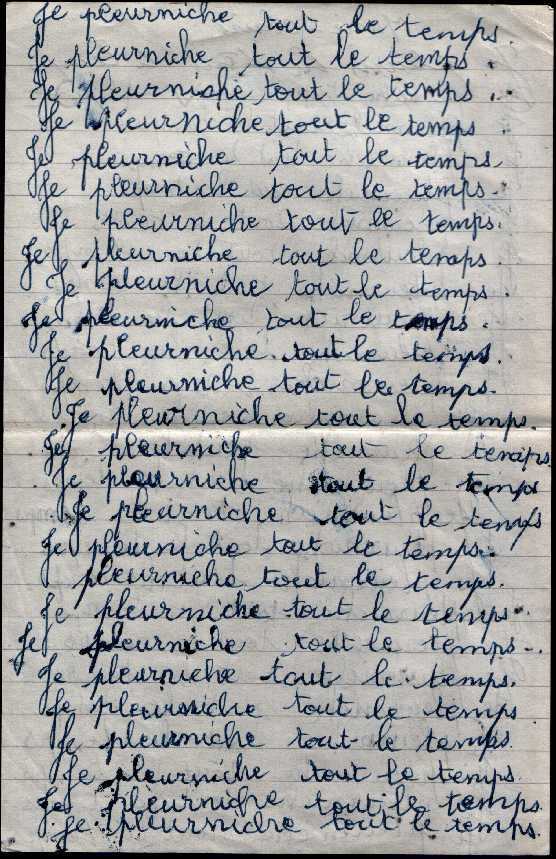 Je pleurniche tout le temps.
Je pleurniche tout le temps.
Je pleurniche tout le temps.
Je pleurniche tout le temps.
Je pleurniche tout le temps.
Je pleurniche tout le temps.
Je pleurniche tout le temps.
Je pleurniche tout le temps.
Je pleurniche tout le temps.
Je pleurniche tout le temps.
Je pleurniche tout le temps.
Je pleurniche tout le temps.
Je pleurniche tout le temps.
Je pleurniche tout le temps
Je pleurniche tout le temps
Je pleurniche tout le temps
Je pleurniche tout le temps.
pleurniche tout le temps.
Je pleurniche tout le temps.
Je pleurniche tout le temps.
Je pleurniche tout le temps.
Je pleurniche tout le temps
Je pleurniche tout le temps.
Je pleurniche tout le temps.
Je pleurniche tout le temps.
Je pleurniche tout le temps.